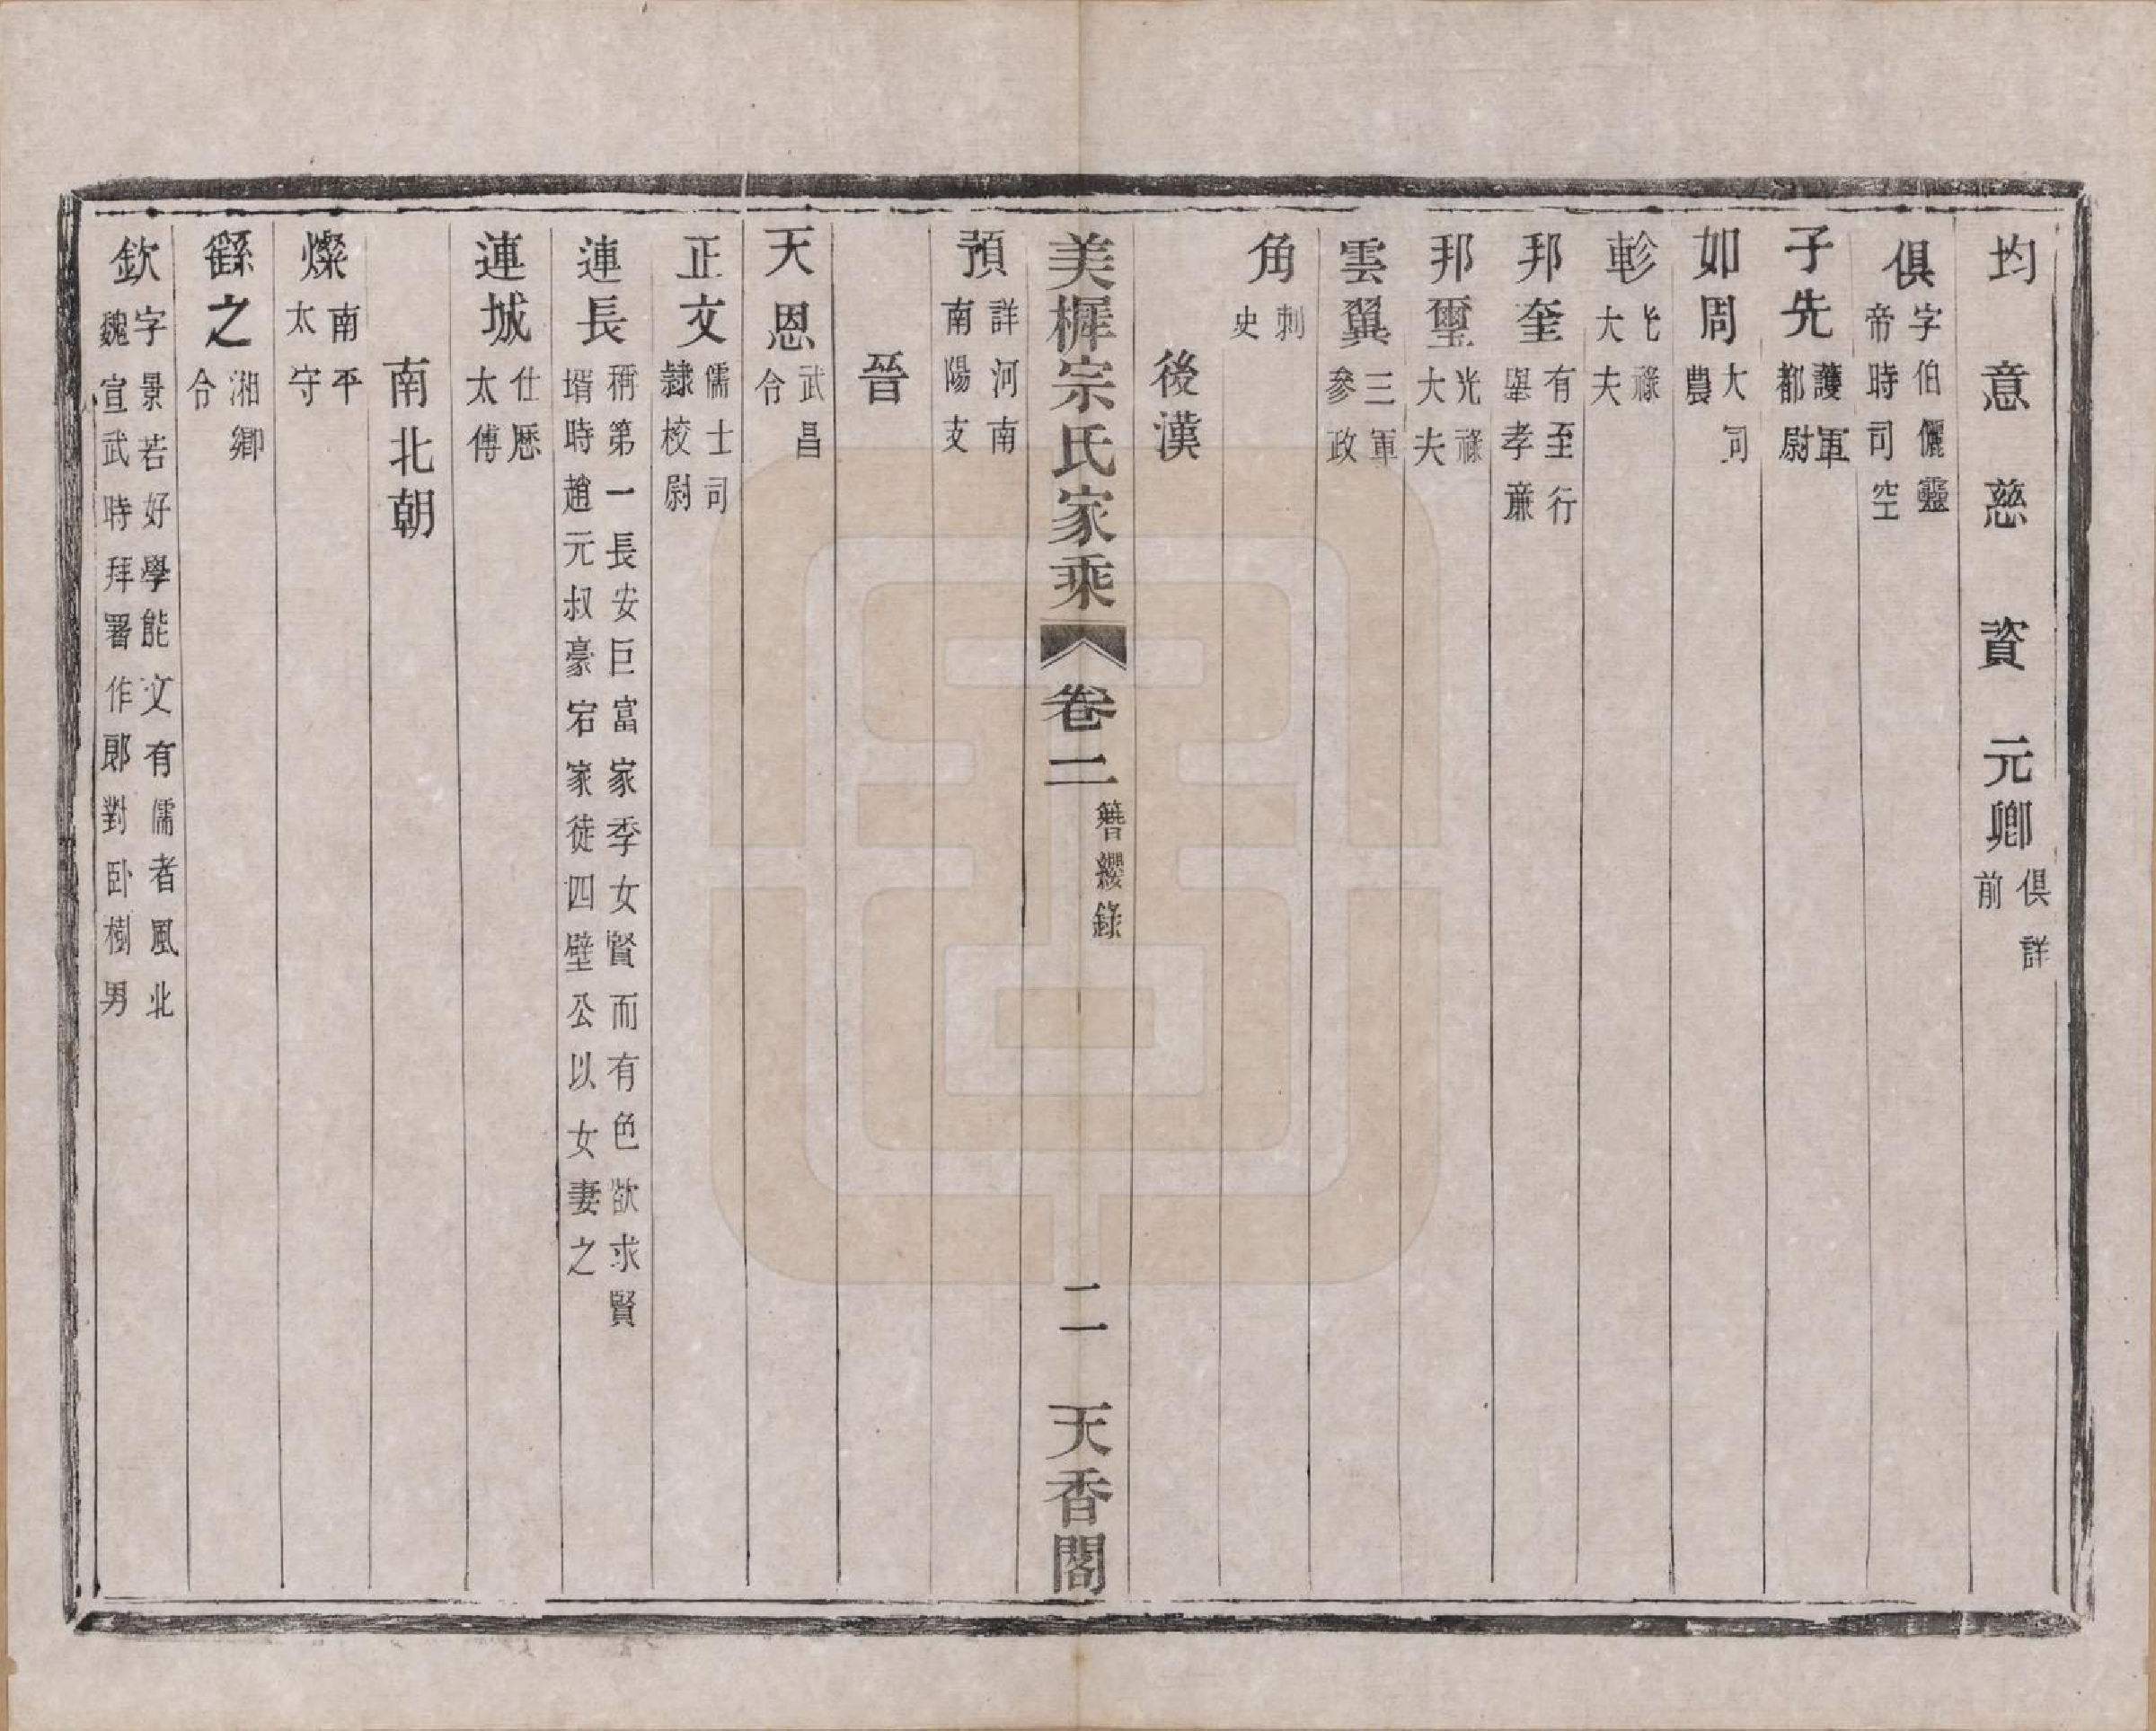 均 意 慈 資 元卿俱詳前
俱字伯儷靈帝時司空
子先護軍都尉
如周大司農
軫光祿大夫
邦奎有至行舉孝廉
邦璽光祿大夫
雲翼三軍參政
角刺史
後漢
美樨宗氏家乘 卷二 簪纓錄 二 天香閣
預詳河南南陽支
晉
天恩武昌令
正文儒士司隸校尉
連長稱第一長安巨富家季女賢而有色欲求賢壻時趙元叔豪宕家徒四壁公以女妻之
連城仕歷太傅
南北朝
燦南平太守
繇之湘鄉令
欽字景若好學能文有儒者風北魏宣武時拜署作郎對臥樹男